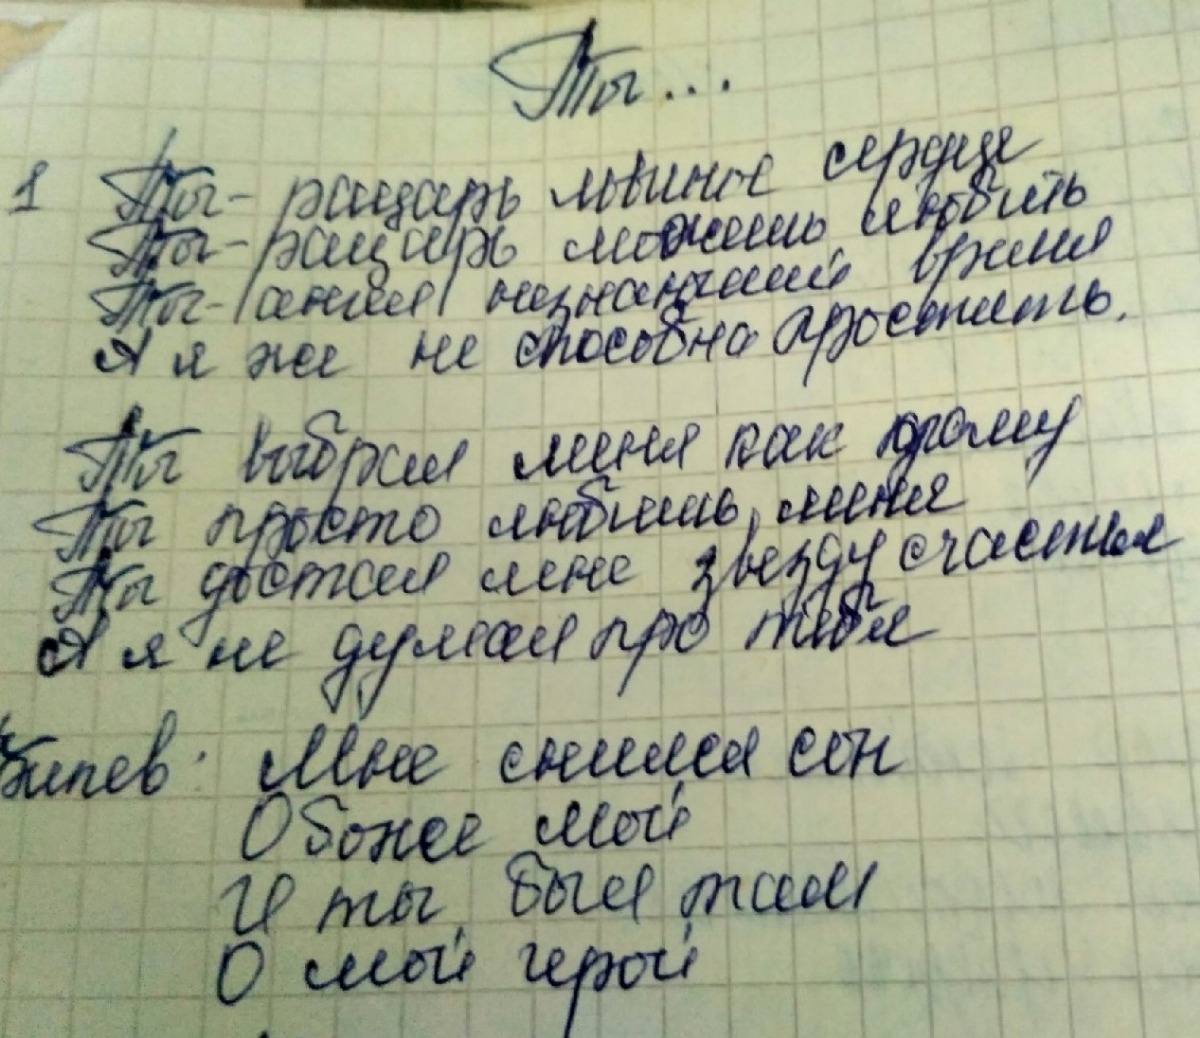 Ты...
1 Ты - рацарь львиное сердце
Ты - рацарь можешь любить
Ты - ангел незнающий время
А я же не способна простить.
Ты выбрал меня как даму
Ты просто любишь меня
Ты достал мне звезду счастья
А я не думал про тебя
Мне снился сон
О боже мой
И ты был там
О мой герой